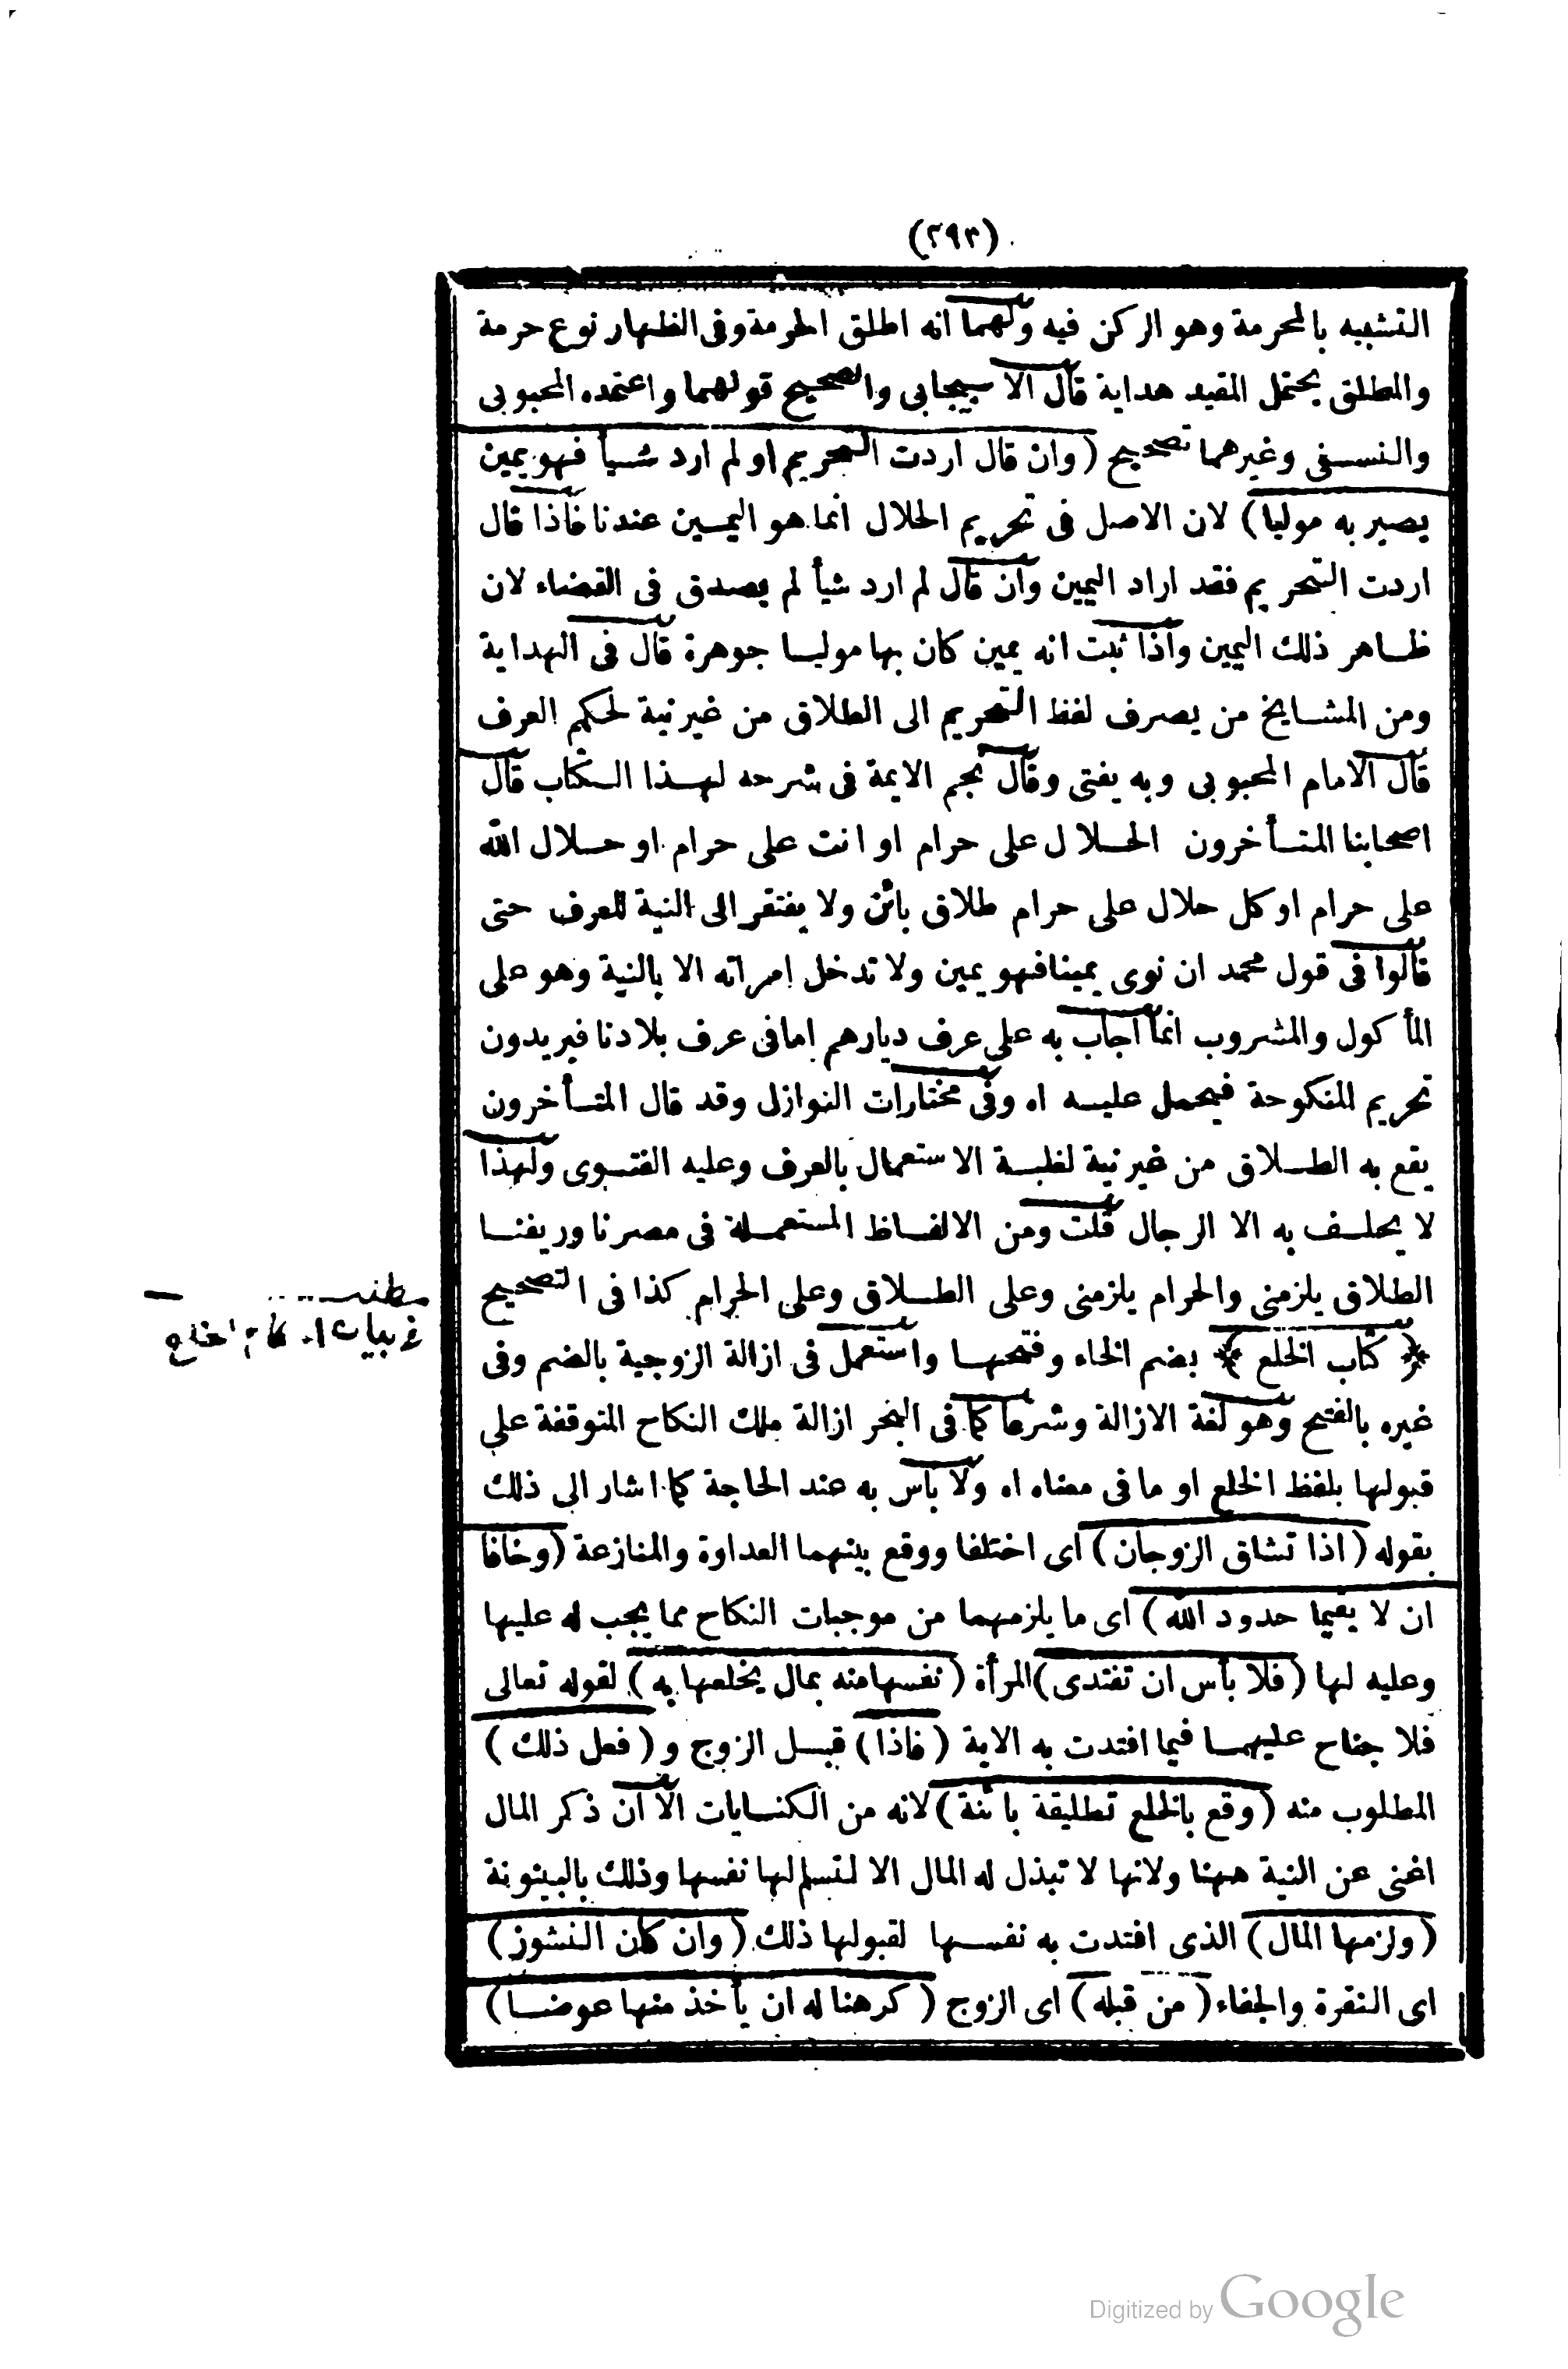 (٢٩٣)
التشبيه بالمحرمة وهو الركن فيه ولهما انه اطلق الحرمة وفى الظهار نوع حرمة
والمطلق يحتمل المقيد هداية قال الاسبيجابى والصحيح قولهما واعتمده المحبوبى
والنسفى وغيرهما تصحيح (وان قال اردت التحريم او لم ارد شيأ فهو يمين
يصير به موليا) لان الاصل فى تحريم الحلال انما هو اليمين عندنا فاذا قال
اردت التحريم فقد اراد اليمين وان قال لم ارد شيأ لم يصدق فى القضاء لان
ظاهر ذلك اليمين واذا ثبت انه يمين كان بها موليا جوهرة قال فى الهداية
ومن المشايخ من يصرف لفظ التحريم الى الطلاق من غير نية لحكم العرف
قال الامام المحبوبى وبه يفتى وقال نجم الايمة فى شرحه لهذا الكتاب قال
اصحابنا المتأخرون الحلال على حرام او انت على حرام او حلال الله
على حرام او كل حلال على حرام طلاق بائن ولا يفتقر الى النية للعرف حتى
قالوا فى قول محمد ان نوى يمينا فهو يمين ولا تدخل امرأته الا بالنية وهو على
المأكول والمشروب انما اجاب به على عرف ديارهم اما فى عرف بلادنا فيريدون
تحريم المنكوحة فيحمل عليه اه وفى مختارات النوازل وقد قال المتأخرون
يقع به الطلاق من غير نية لغلبة الاستعمال بالعرف وعليه الفتوى ولهذا
لا يحلف به الا الرجال قلت ومن الالفاظ المستعملة فى مصرنا وريفنا
الطلاق يلزمنى والحرام يلزمنى وعلى الطلاق وعلى الحرام كذا فى التصحيح
﴿ كتاب الخلع ﴾ بضم الخاء وفتحها واستعمل فى ازالة الزوجية بالضم وفى
غيره بالفتح وهو لغة الازالة وشرعا كما فى البحر ازالة ملك النكاح المتوقفة على
قبولها بلفظ الخلع او ما فى معناه اه ولا بأس به عند الحاجة كما اشار الى ذلك
بقوله (اذا تشاق الزوجان) اى اختلفا ووقع بينهما العداوة والمنازعة (وخافا
ان لا يقيما حدود الله) اى ما يلزمهما من موجبات النكاح مما يجب له عليها
وعليه لها (فلا بأس ان تفتدى) المرأة (نفسها منه بمال يخلعها به) لقوله تعالى
فلا جناح عليهما فيما افتدت به الاية (فاذا) قبل الزوج و (فعل ذلك)
المطلوب منه (وقع بالخلع تطليقة بائنة) لانه من الكنايات الا ان ذكر المال
اغنى عن النية ههنا ولانها لا تبذل له المال الا لتسلم لها نفسها وذلك بالبينونة
(ولزمها المال) الذى افتدت به نفسها لقبولها ذلك (وان كان النشوز)
اى النفرة والجفاء (من قبله) اى الزوج (كرهنا له ان يأخذ منها عوضا)
Digitized by Google